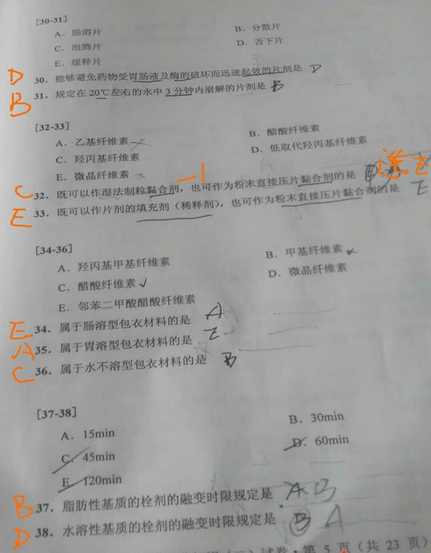 [30-31]
A. 肠溶片
B. 分散片
C. 泡腾片
D. 舌下片
E. 缓释片
D 30. 能够避免药物受胃肠液及酶的破坏而迅速起效的片剂是 D
B 31. 规定在20℃左右的水中3分钟内崩解的片剂是 B
[32-33]
A. 乙基纤维素
B. 醋酸纤维素
C. 羟丙基纤维素
D. 低取代羟丙基纤维素
E. 微晶纤维素
-1
C 32. 既可以作湿法制粒黏合剂，也可作为粉末直接压片黏合剂的是
E 33. 既可以作片剂的填充剂（稀释剂），也可作为粉末直接压片黏合剂的是 E
[34-36]
A. 羟丙基甲基纤维素
B. 甲基纤维素
C. 醋酸纤维素 ✓
D. 微晶纤维素
E. 邻苯二甲酸醋酸纤维素
E 34. 属于肠溶型包衣材料的是 A
A 35. 属于胃溶型包衣材料的是 E
C 36. 属于水不溶型包衣材料的是 B
[37-38]
A. 15min
B. 30min
C. 45min
D. 60min
E. 120min
B 37. 脂肪性基质的栓剂的融变时限规定是 A B
D 38. 水溶性基质的栓剂的融变时限规定是 B A
试卷·第 5 页（共 23 页）